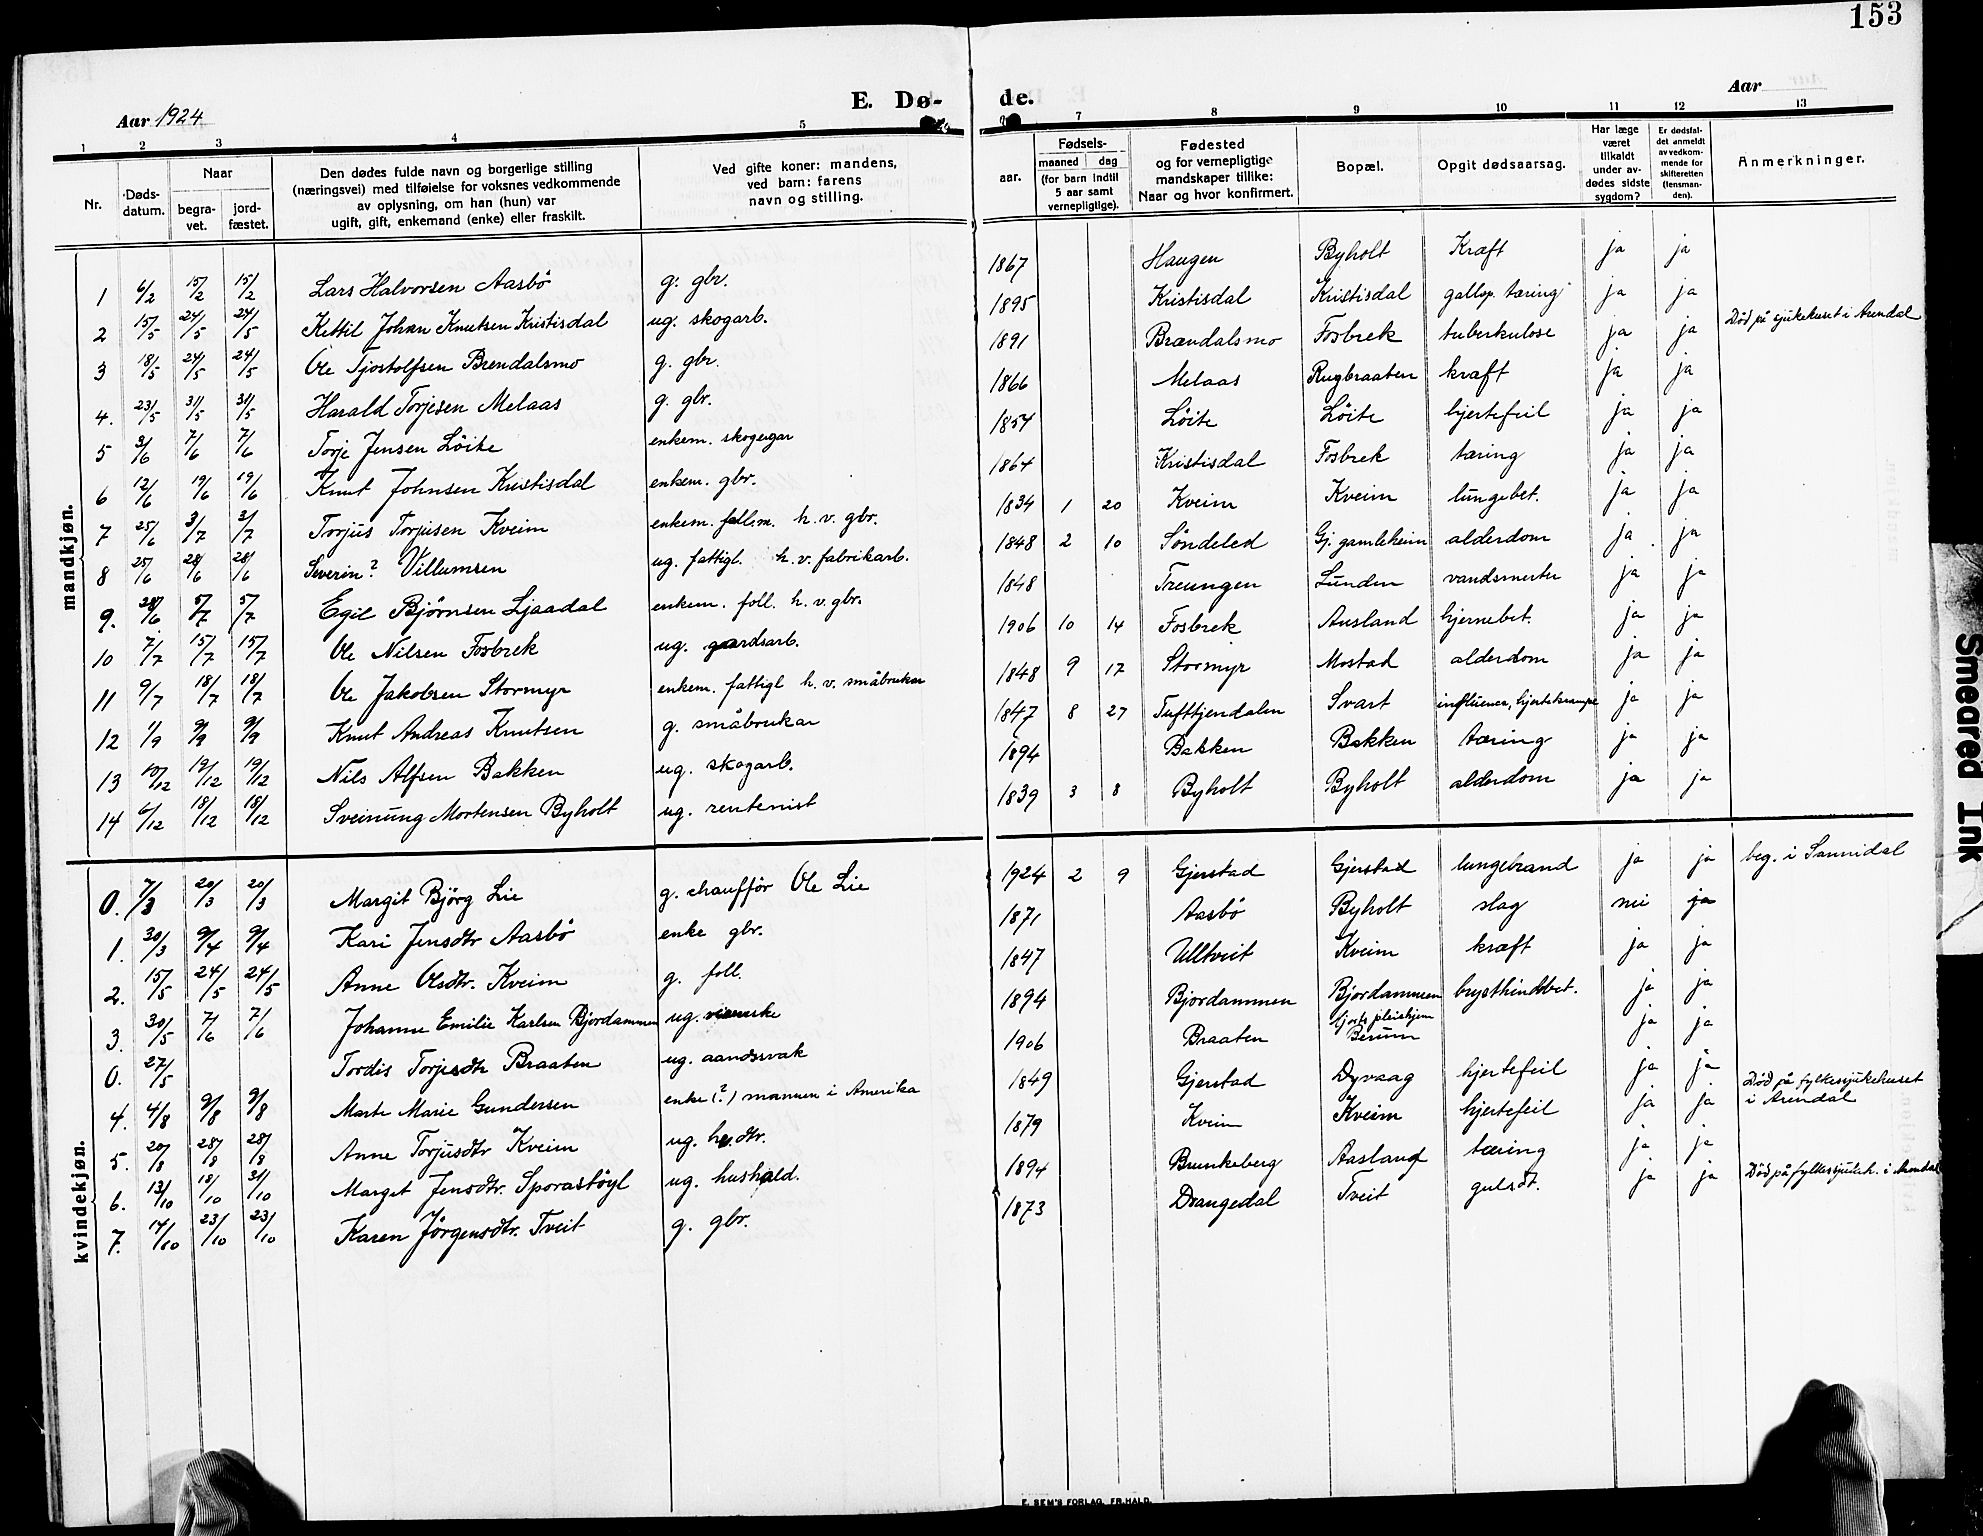 153
Aar 1924
E. Dø-
de.
Aar
1 2 3 4 5 7 8 9 10 11 12 13
Nr.
Døds-
datum.
Naar
begra-
vet.
jord-
fæstet.
Den dødes fulde navn og borgerlige stilling
(næringsvei) med tilføielse for voksnes vedkommende
av oplysning, om han (hun) var
ugift, gift, enkemand (enke) eller fraskilt.
Ved gifte koner: mandens,
ved barn: farens
navn og stilling.
aar.
Fødsels-
maaned dag
(for barn indtil
5 aar samt
vernepligtige).
Fødested
og for vernepligtige
mandskaper tillike:
Naar og hvor konfirmert.
Bopæl.
Opgit dødsaarsag.
Har læge
været
tilkaldt
under av-
dødes sidste
sygdom?
Er dødsfal-
det anmeldt
av vedkom-
mende for
skifteretten
(lensman-
den).
Anmerkninger.
mandkjøn.
1 6/2 15/2 15/2 Lars Halvorsen Aasbö g. gbr. 1867 Haugen Byholt Kræft ja ja
2 15/5 24/5 24/5 Kettil Johan Knutsen Kristisdal ug. skogarb. 1895 Kristisdal Kristisdal gallop. tæring ja ja
3 18/5 24/5 24/5 Ole Tjostolfsen Brendalsmo g. gbr. 1891 Brændalsmo Fosbrek tuberkulose ja ja Död på sjukehuset i Arendal
4. 23/5 31/5 31/5 Harald Torjesen Melaas g. gbr. 1866 Melaas Rugbraaten kræft ja ja
5 3/6 7/6 7/6 Torje Jensen Löite enkem. skogeigar 1854 Löite Löite hjertefeil ja ja
6 12/6 19/6 19/6 Knut Johnsen Kristisdal enkem. gbr. 1864 Kristisdal Fosbrek tæring ja ja
7 25/6 3/7 3/7 Torjus Torjusen Kveim enkem. follm. h. v. gbr. 1834 1 20 Kveim Kveim lungebet. ja ja
8 25/6 28/6 28/6 Severin? Villumsen ug. fattigl. h. v. fabrikarb. 1848 2 10 Söndeled Gj. gamleheim alderdom ja ja
9. 28/6 5/7 5/7 Egil Bjørnsen Ljaadal enkem. foll. h. v. gbr. 1848 Treungen Lunden vandsmerter ja ja
10 7/7 15/7 15/7 Ole Nilsen Fosbrek ug. gardsarb. 1906 10 14 Fosbrek Ausland hjernebet. ja ja
11 9/7 18/7 18/7 Ole Jakobsen Stormyr enkem. fattigl h. v. småbrukar 1848 9 17 Stormyr Mostad alderdom ja ja
12 1/9 9/9 9/9 Knut Andreas Knutsen g. småbrukar 1847 8 27 Tufttjendalen Svart influensa, hjertekrampe ja ja
13 10/12 19/12 19/12 Nils Alfsen Bakken ug. skogarb. 1894 Bakken Bakken tæring ja ja
14 6/12 18/12 18/12 Sveinung Mortensen Byholt ug. rentenist 1839 3 8 Byholt Byholt alderdom ja ja
kvindekjøn.
0. 7/3 20/3 20/3 Margit Björg Lie g. chafför Ole Lie 1924 2 9 Gjerstad Gjerstad lungebrand ja ja beg. i Sannidal
1. 30/3 9/4 9/4 Kari Jensdtr Aasbö enke gbr. 1871 Aasbö Byholt slag nei ja
2. 15/5 24/5 24/5 Anne Olsdtr. Kveim g. foll. 1847 Ulltveit Kveim kræft ja ja
3. 30/5 7/6 7/6 Johanne Emilie Karlsen Bjordammen ug. 1894 Bjordammen Bjordammen brysthindebet. ja ja
0. 27/5 Tordis Torjusdtr Braaten ug. aandssvak 1906 Braaten pleiehjem ja ja
4. 4/8 9/8 9/8 Marte Marie Gundersen enke (?) mannen i Amerika 1849 Gjerstad Dyvaag hjertefeil ja ja
5. 20/8 28/8 28/8 Anne Torjusdtr Kveim ug. 1879 Kveim Kveim hjertefeil ja ja Död på fylkessjukehuset
i Arendal
6. 13/10 18/10 31/10 Marget Jensdtr. Sporastöyl ug. hushald. 1894 Brunkeberg Aasland tæring ja ja
7. 14/10 23/10 23/10 Karen Jörgensdtr. Tveit g. gbr. 1873 Drangedal Tveit gulsot. ja ja Död på fylkessjukeh. i Arendal
E. SEM'S FORLAG, FR.HALD.
Smeared Ink